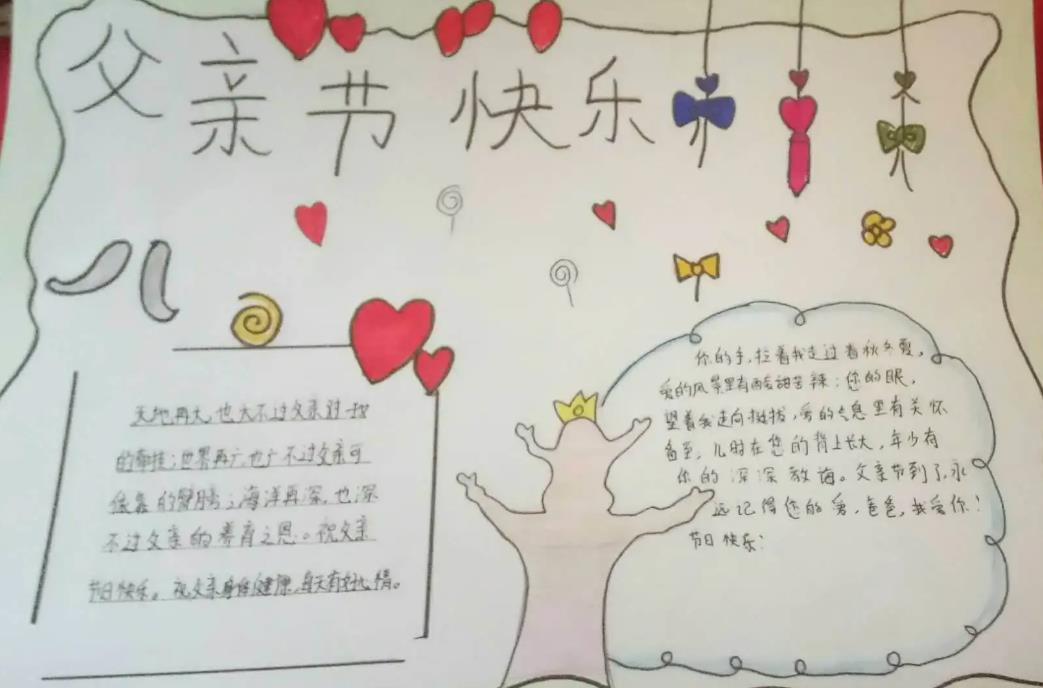 父亲节快乐
天地再大,也大不过父亲对我
的牵挂;世界再广,也广不过父亲可
依靠的臂膀;海洋再深,也深
不过父亲的养育之恩。祝父亲
节日快乐。祝父亲身体健康,每天有好心情。
你的手,拉着我走过春秋冬夏,
爱的风景里有酸甜苦辣;您的眼,
望着我走向挺拔,爱的气息里有关怀
备至,儿时在您的背上长大,年少有
你的深深教诲。父亲节到了,永
远记得您的爱,爸爸,我爱你!
节日快乐!